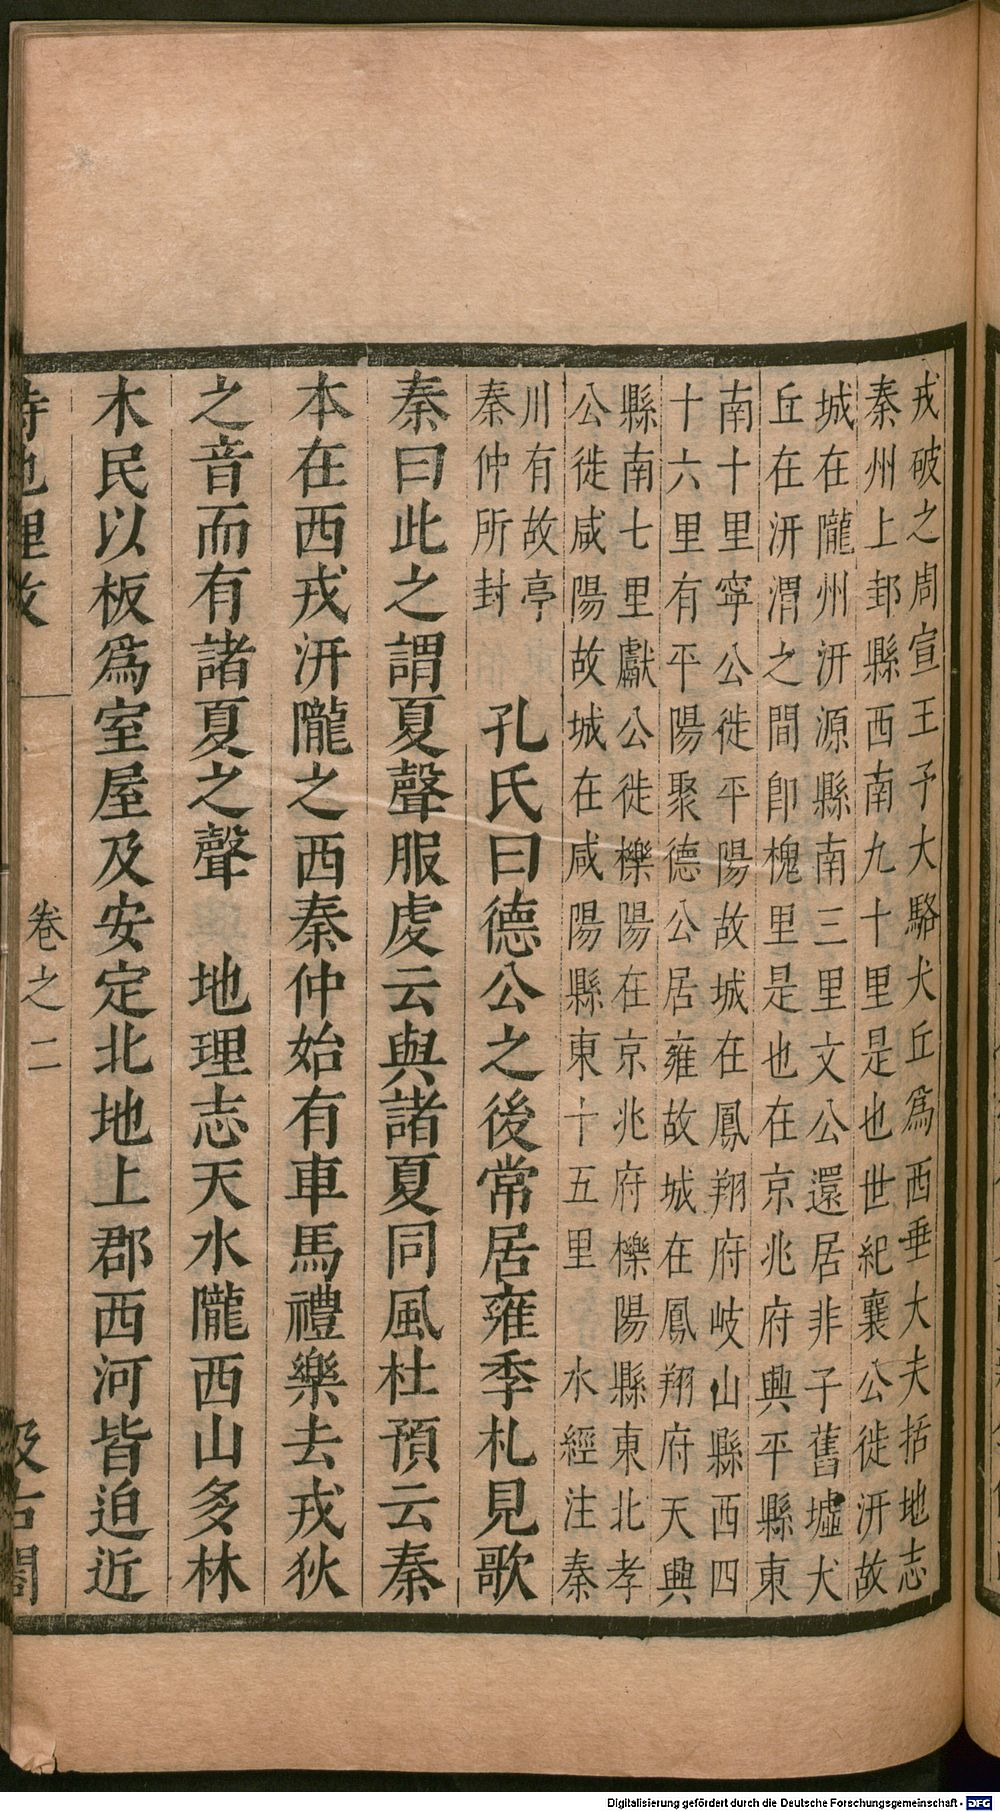 戎破之周宣王予大駱犬丘爲西垂大夫括地志
秦州上邽縣西南九十里是也世紀襄公徙汧故
城在隴州汧源縣南三里文公還居非子舊墟犬
丘在汧渭之間卽槐里是也在京兆府興平縣東
南十里寧公徙平陽故城在鳳翔府岐山縣西四
十六里有平陽聚德公居雍故城在鳳翔府天興
縣南七里獻公徙櫟陽在京兆府櫟陽縣東北孝
公徙咸陽故城在咸陽縣東十五里 水經注秦
川有故亭
秦仲所封
孔氏曰德公之後常居雍季札見歌
秦曰此之謂夏聲服虔云與諸夏同風杜預云秦
本在西戎汧隴之西秦仲始有車馬禮樂去戎狄
之音而有諸夏之聲 地理志天水隴西山多林
木民以板爲室屋及安定北地上郡西河皆迫近
詩地理攷 卷之二 汲古閣
Digitalisierung gefördert durch die Deutsche Forschungsgemeinschaft - DFG